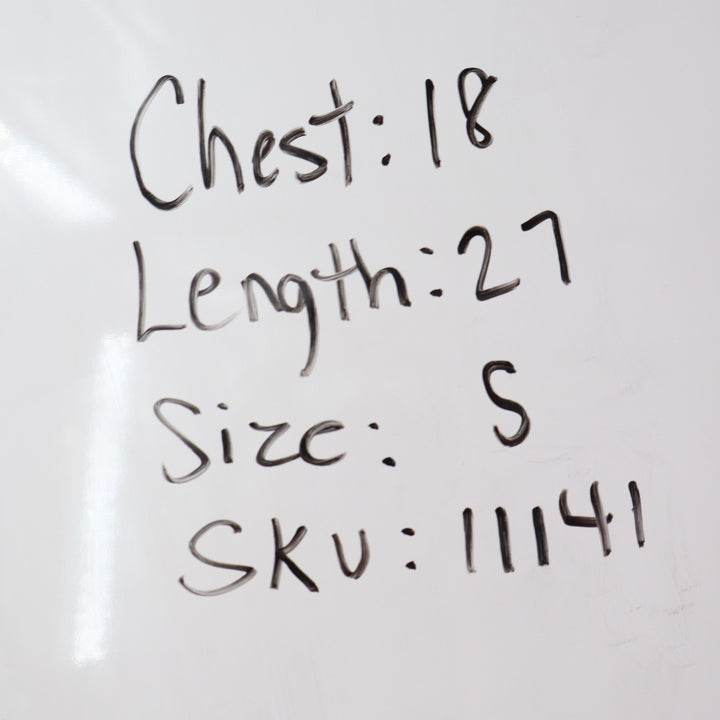 Chest: 18
Length: 27
Size: S
SKU: 11141